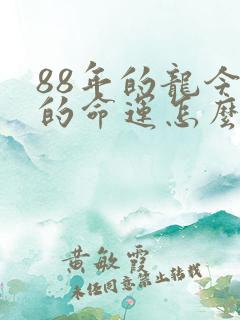 88年的龍今
的命運怎麼
黄敏霞
未经同意禁止转载